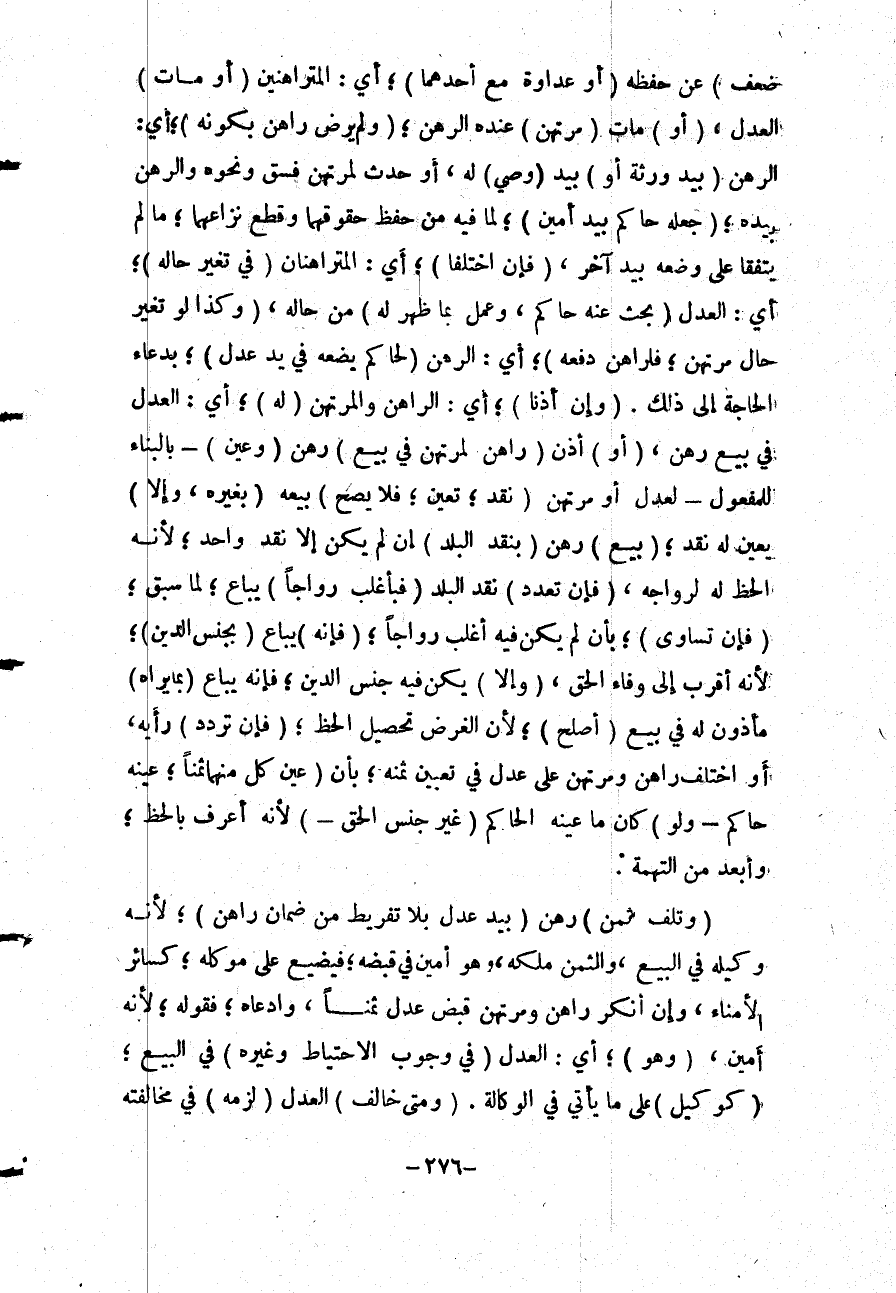 ضعف ) عن حفظه ( أو عداوة مع أحدهما ) ؛ أي : المتراهنين ( أو مـات )
العدل ، ( أو ) مات ( مرتهن ) عنده الرهن ؛ ( ولم يرض راهن بكونه ) ؛ أي :
الرهن ( بيد ورثة أو ) بيد (وصي) له ، أو حدث لمرتهن فسق ونحوه والرهن
بيده ؛ ( جعله حاكم بيد أمين ) ؛ لما فيه من حفظ حقوقهما وقطع نزاعهما ؛ ما لم
يتفقا على وضعه بيد آخر ، ( فإن اختلفا ) ؛ أي : المتراهنان ( في تغير حاله ) ؛
أي : العدل ( بحث عنه حاكم ، وعمل بما ظهر له ) من حاله ، ( وكذا لو تغير
حال مرتهن ؛ فلراهن دفعه ) ؛ أي : الرهن ( لحاكم يضعه في يد عدل ) ؛ بدعاء
الحاجة إلى ذلك . ( وإن أذنا ) ؛ أي : الراهن والمرتهن ( له ) ؛ أي : العدل
في بيـع رهن ، ( أو ) أذن ( راهن لمرتهن في بيـع ) رهن ( وعين ) – بالبناء
للمفعول – لعدل أو مرتهن ( نقد ؛ تعين ؛ فلا يصح ) بيعه ( بغيره ، وإلا )
يعين له نقد ؛ ( بيـع ) رهن ( بنقد البلد ) ان لم يكن إلا نقد واحد ؛ لأنـه
الحظ له لرواجه ، ( فإن تعدد ) نقد البلد ( فبأغلب رواجاً ) يباع ؛ لما سبق ؛
( فإن تساوى ) ؛ بأن لم يكن فيه أغلب رواجاً ؛ ( فإنه ) يباع ( بجنس الدين ) ؛
لأنه أقرب إلى وفاء الحق ، ( وإلا ) يكن فيه جنس الدين ؛ فإنه يباع (بما يراه)
مأذون له في بيع ( أصلح ) ؛ لأن الغرض تحصيل الحظ ؛ ( فإن تردد ) رأيه،
أو اختلف راهن ومرتهن على عدل في تعيين ثمنه ؛ بأن ( عين كل منهما ثمناً ؛ عينه
حاكم – ولو ) كان ما عينه الحاكم ( غير جنس الحق – ) لأنه أعرف بالحظ ؛
وأبعد من التهمة .
( وتلف ثمن ) رهن ( بيد عدل بلا تفريط من ضمان راهن ) ؛ لأنـه
وكيله في البيـع ، والثمن ملكه، وهو أمين في قبضه ؛ فيضيع على موكله ؛ كسائر
الأمناء ، وإن أنكر راهن ومرتهن قبض عدل ثمنـــاً ، وادعاه ؛ فقوله ؛ لأنه
أمين ، ( وهو ) ؛ أي : العدل ( في وجوب الاحتياط وغيره ) في البيـع ؛
( كوكيل ) على ما يأتي في الوكالة . ( ومتى خالف ) العدل ( لزمه ) في مخالفته
–٢٧٦–